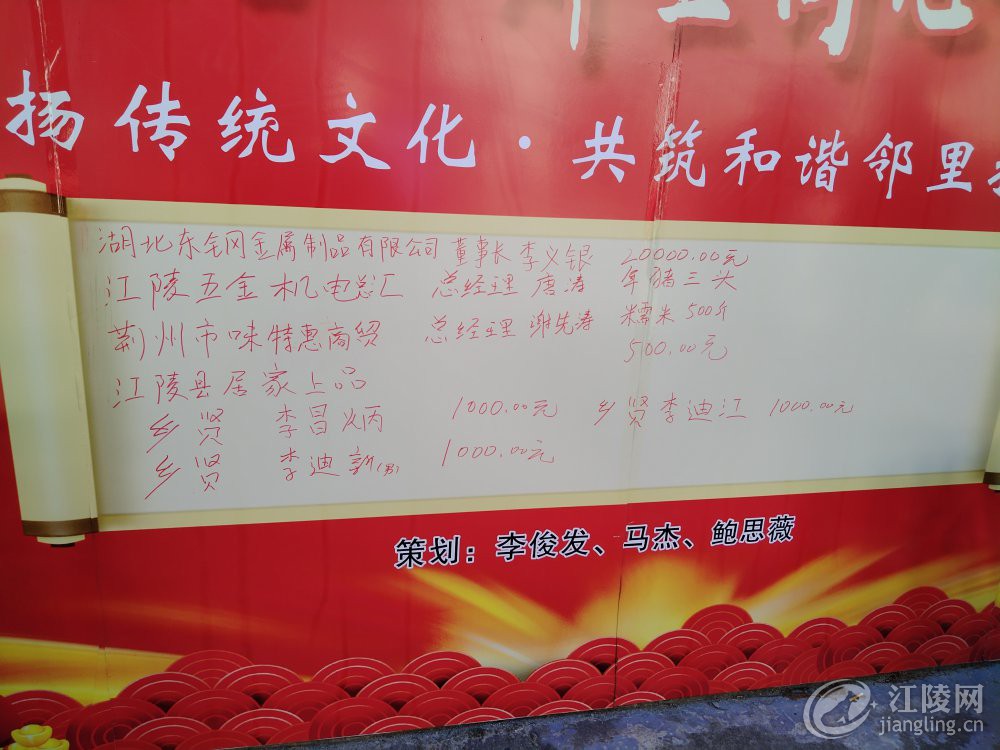 扬传统文化·共筑和谐邻里
湖北东钢金属制品有限公司 董事长 李义银 20000.00元
江陵五金机电总汇 总经理 唐涛 年猪三头
荆州市味特惠商贸 总经理 谢先涛 糯米500斤
江陵县居家上品 500.00元
乡贤 李昌炳 1000.00元 乡贤 李迪江 1000.00元
乡贤 李迪新(男) 1000.00元
策划：李俊发、马杰、鲍思薇
江陵网
jiangling.cn